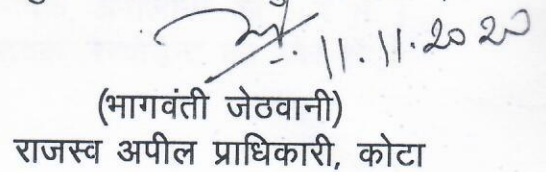 11.11.2020
(भागवंती जेठवानी)
राजस्व अपील प्राधिकारी, कोटा